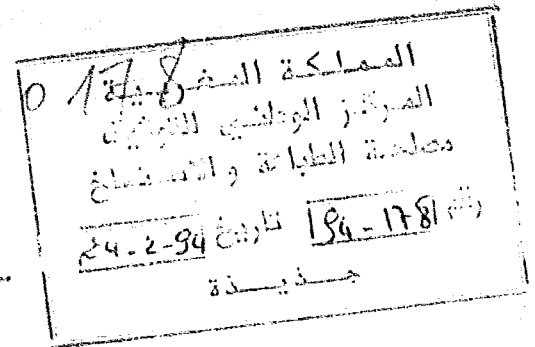 0178
المملكة المغربية
المركز الوطني للتوثيق
مصلحة الطباعة والاستنساخ
رقم 94-178 تاريخ 24-2-94
جــذيــذة